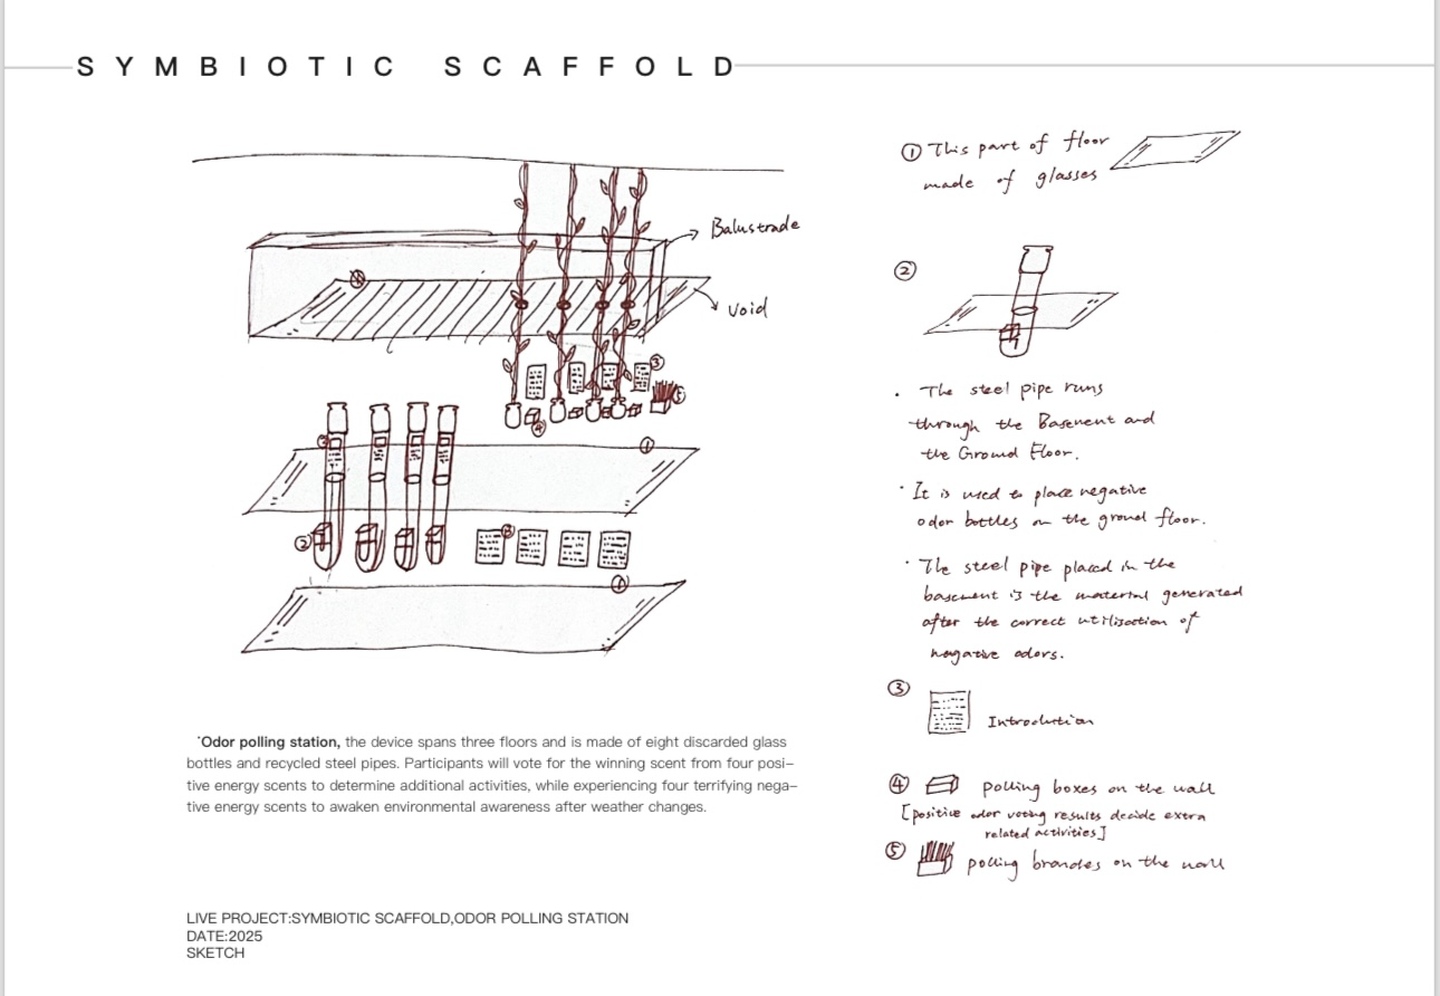 SYMBIOTIC SCAFFOLD
Balustrade
Void
③
⑤
④
①
②
③
①
① This part of floor
made of glasses
②
· The steel pipe runs
through the Basement and
the Ground Floor.
· It is used to place negative
odor bottles on the ground floor.
· The steel pipe placed in the
basement is the material generated
after the correct utilisation of
negative odors.
③
Introduction
④ polling boxes on the wall
[positive odor voting results decide extra
related activities]
⑤ polling branches on the wall
'Odor polling station, the device spans three floors and is made of eight discarded glass
bottles and recycled steel pipes. Participants will vote for the winning scent from four posi–
tive energy scents to determine additional activities, while experiencing four terrifying nega–
tive energy scents to awaken environmental awareness after weather changes.
LIVE PROJECT:SYMBIOTIC SCAFFOLD,ODOR POLLING STATION
DATE:2025
SKETCH